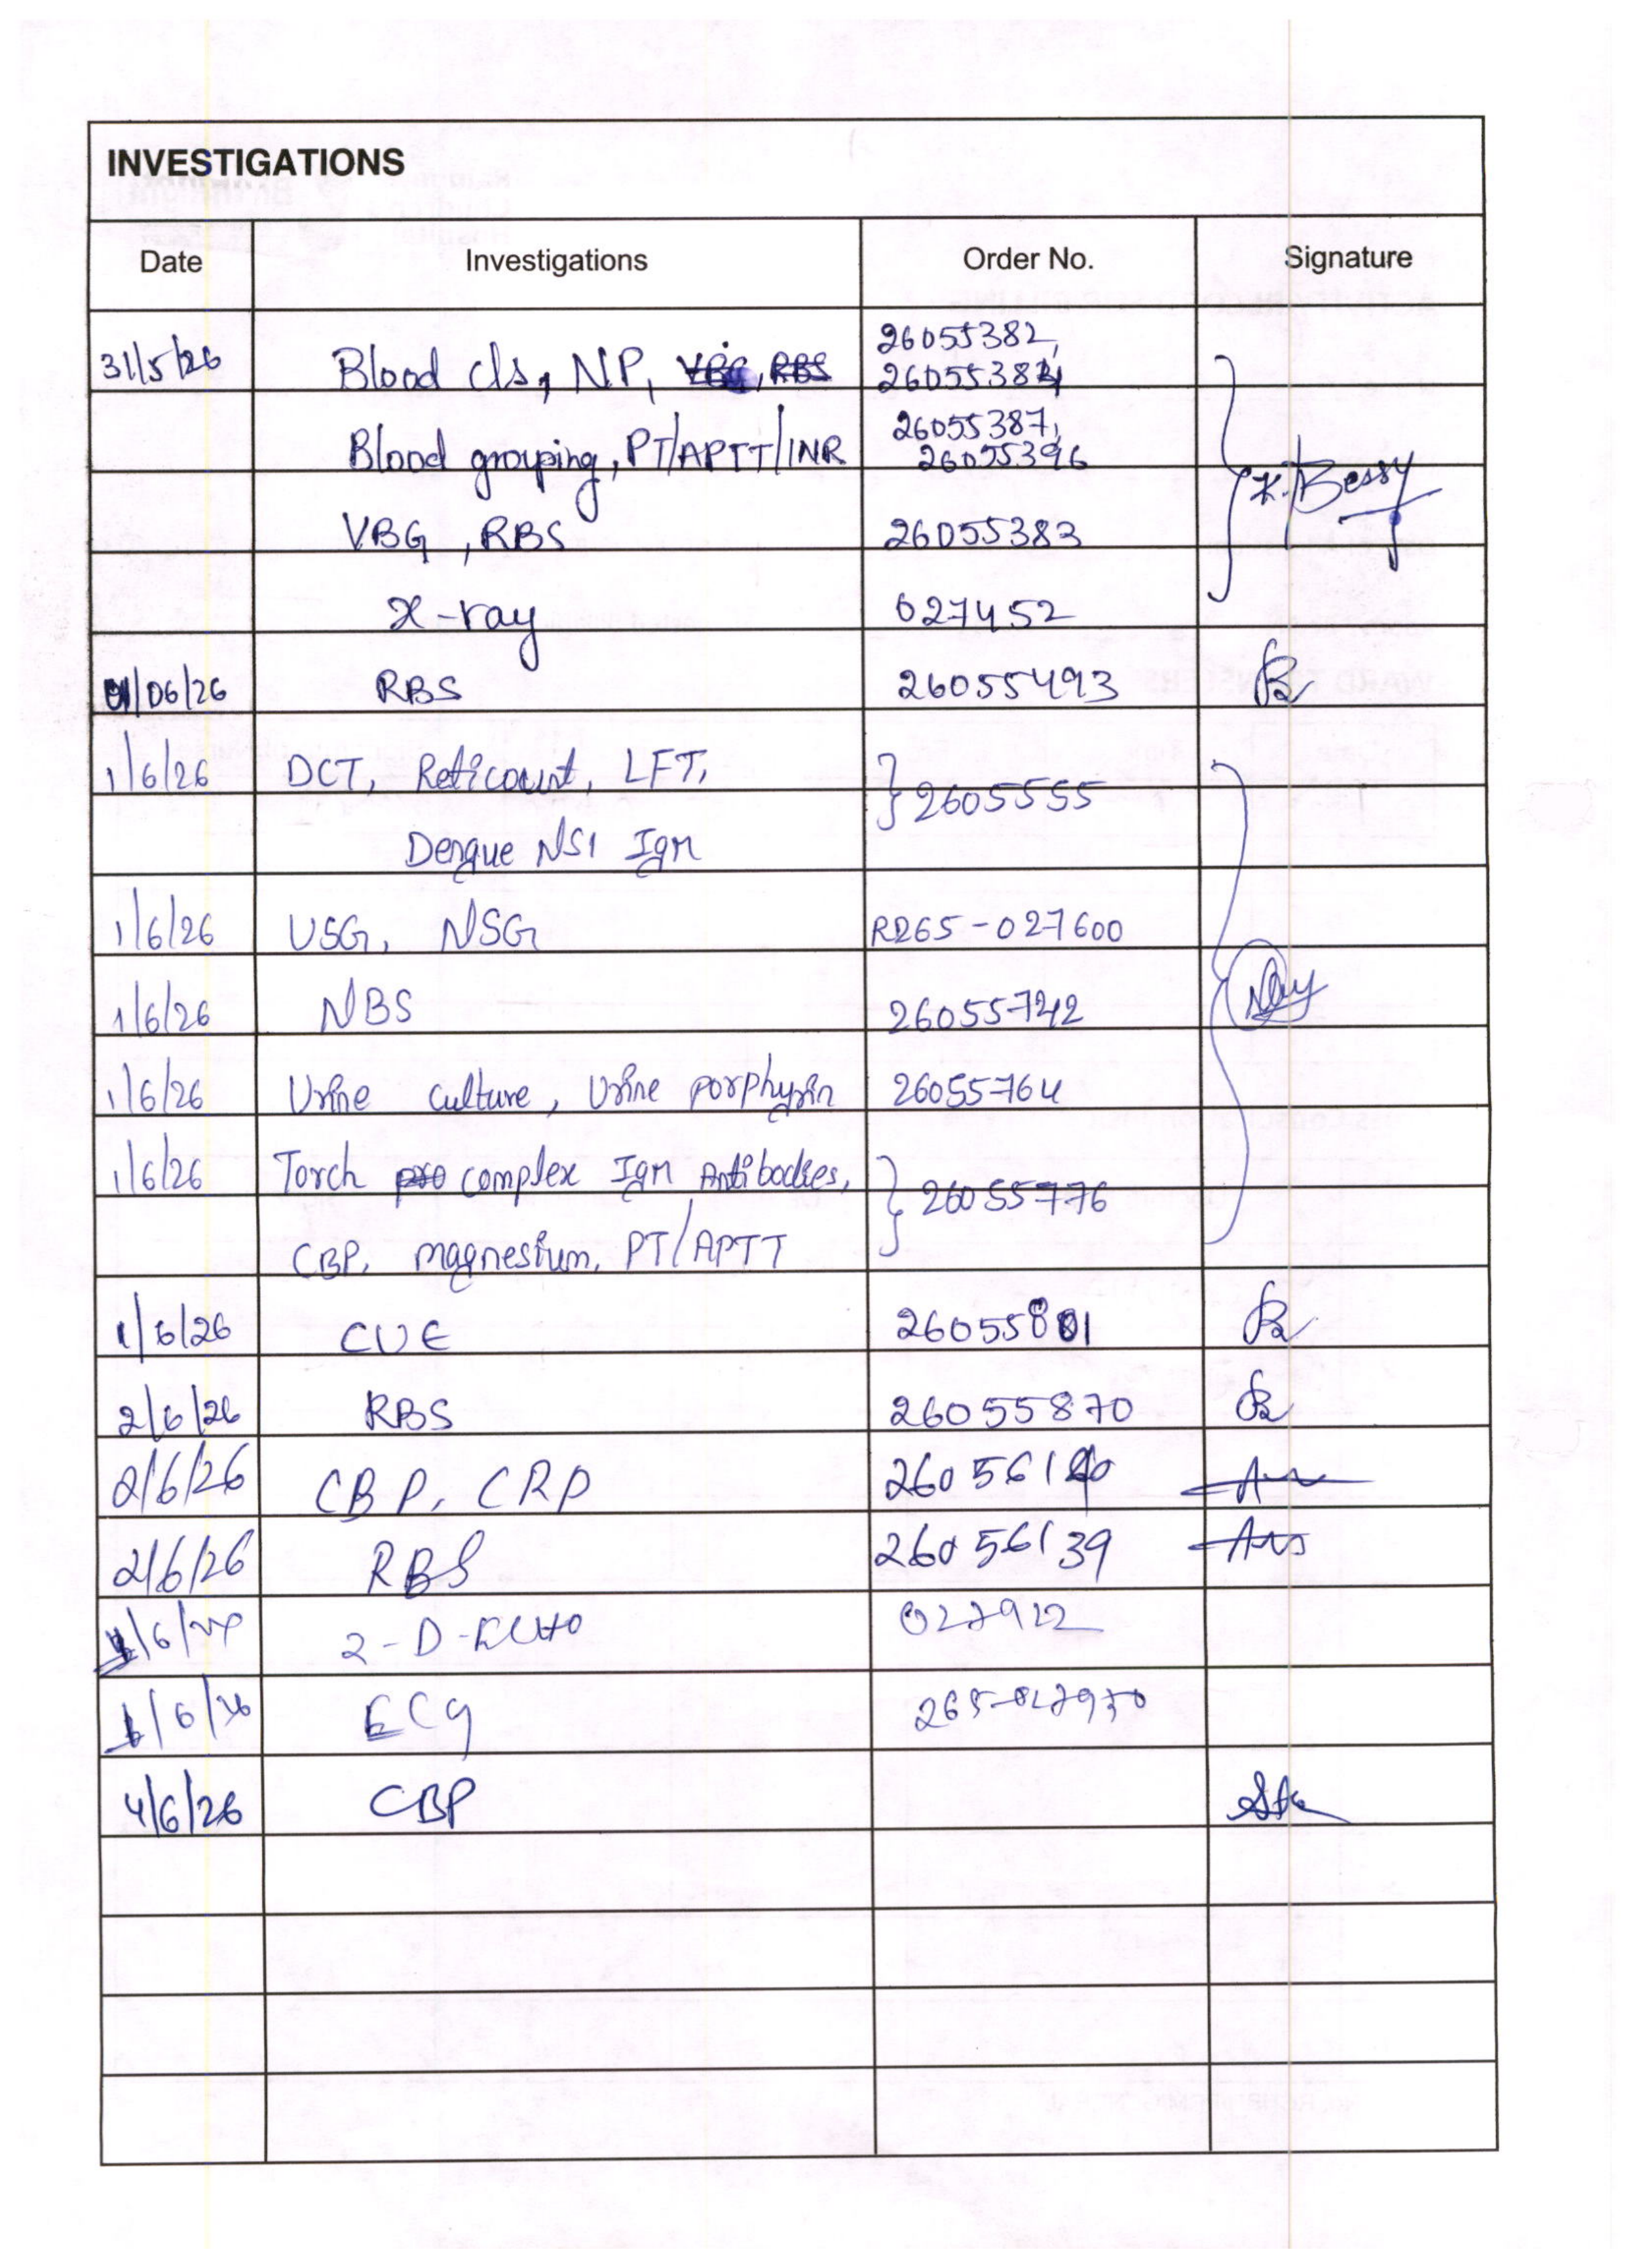 INVESTIGATIONS
Date Investigations Order No. Signature
26055382,
31/5/26 Blood c/s, NP, VBG, RBS 26055384
26055387,
Blood grouping, PT/APTT/INR 26055396
K. Bessy
VBG, RBS 26055383
X-ray 027452
01/06/26 RBS 26055493
1/6/26 DCT, Reticount, LFT, 2605555
Dengue NS1 IgM
1/6/26 USG, NSG R265-027600
1/6/26 NBS 26055742
1/6/26 Urine culture, Urine porphyrin 26055764
1/6/26 Torch complex IgM Antibodies, 26055776
CBP, magnesium, PT/APTT
1/6/26 CUE 26055801
2/6/26 RBS 26055870
2/6/26 CBP, CRP
2/6/26 RBS 26056139
2-D-ECHO 027922
ECG
4/6/26 CBP